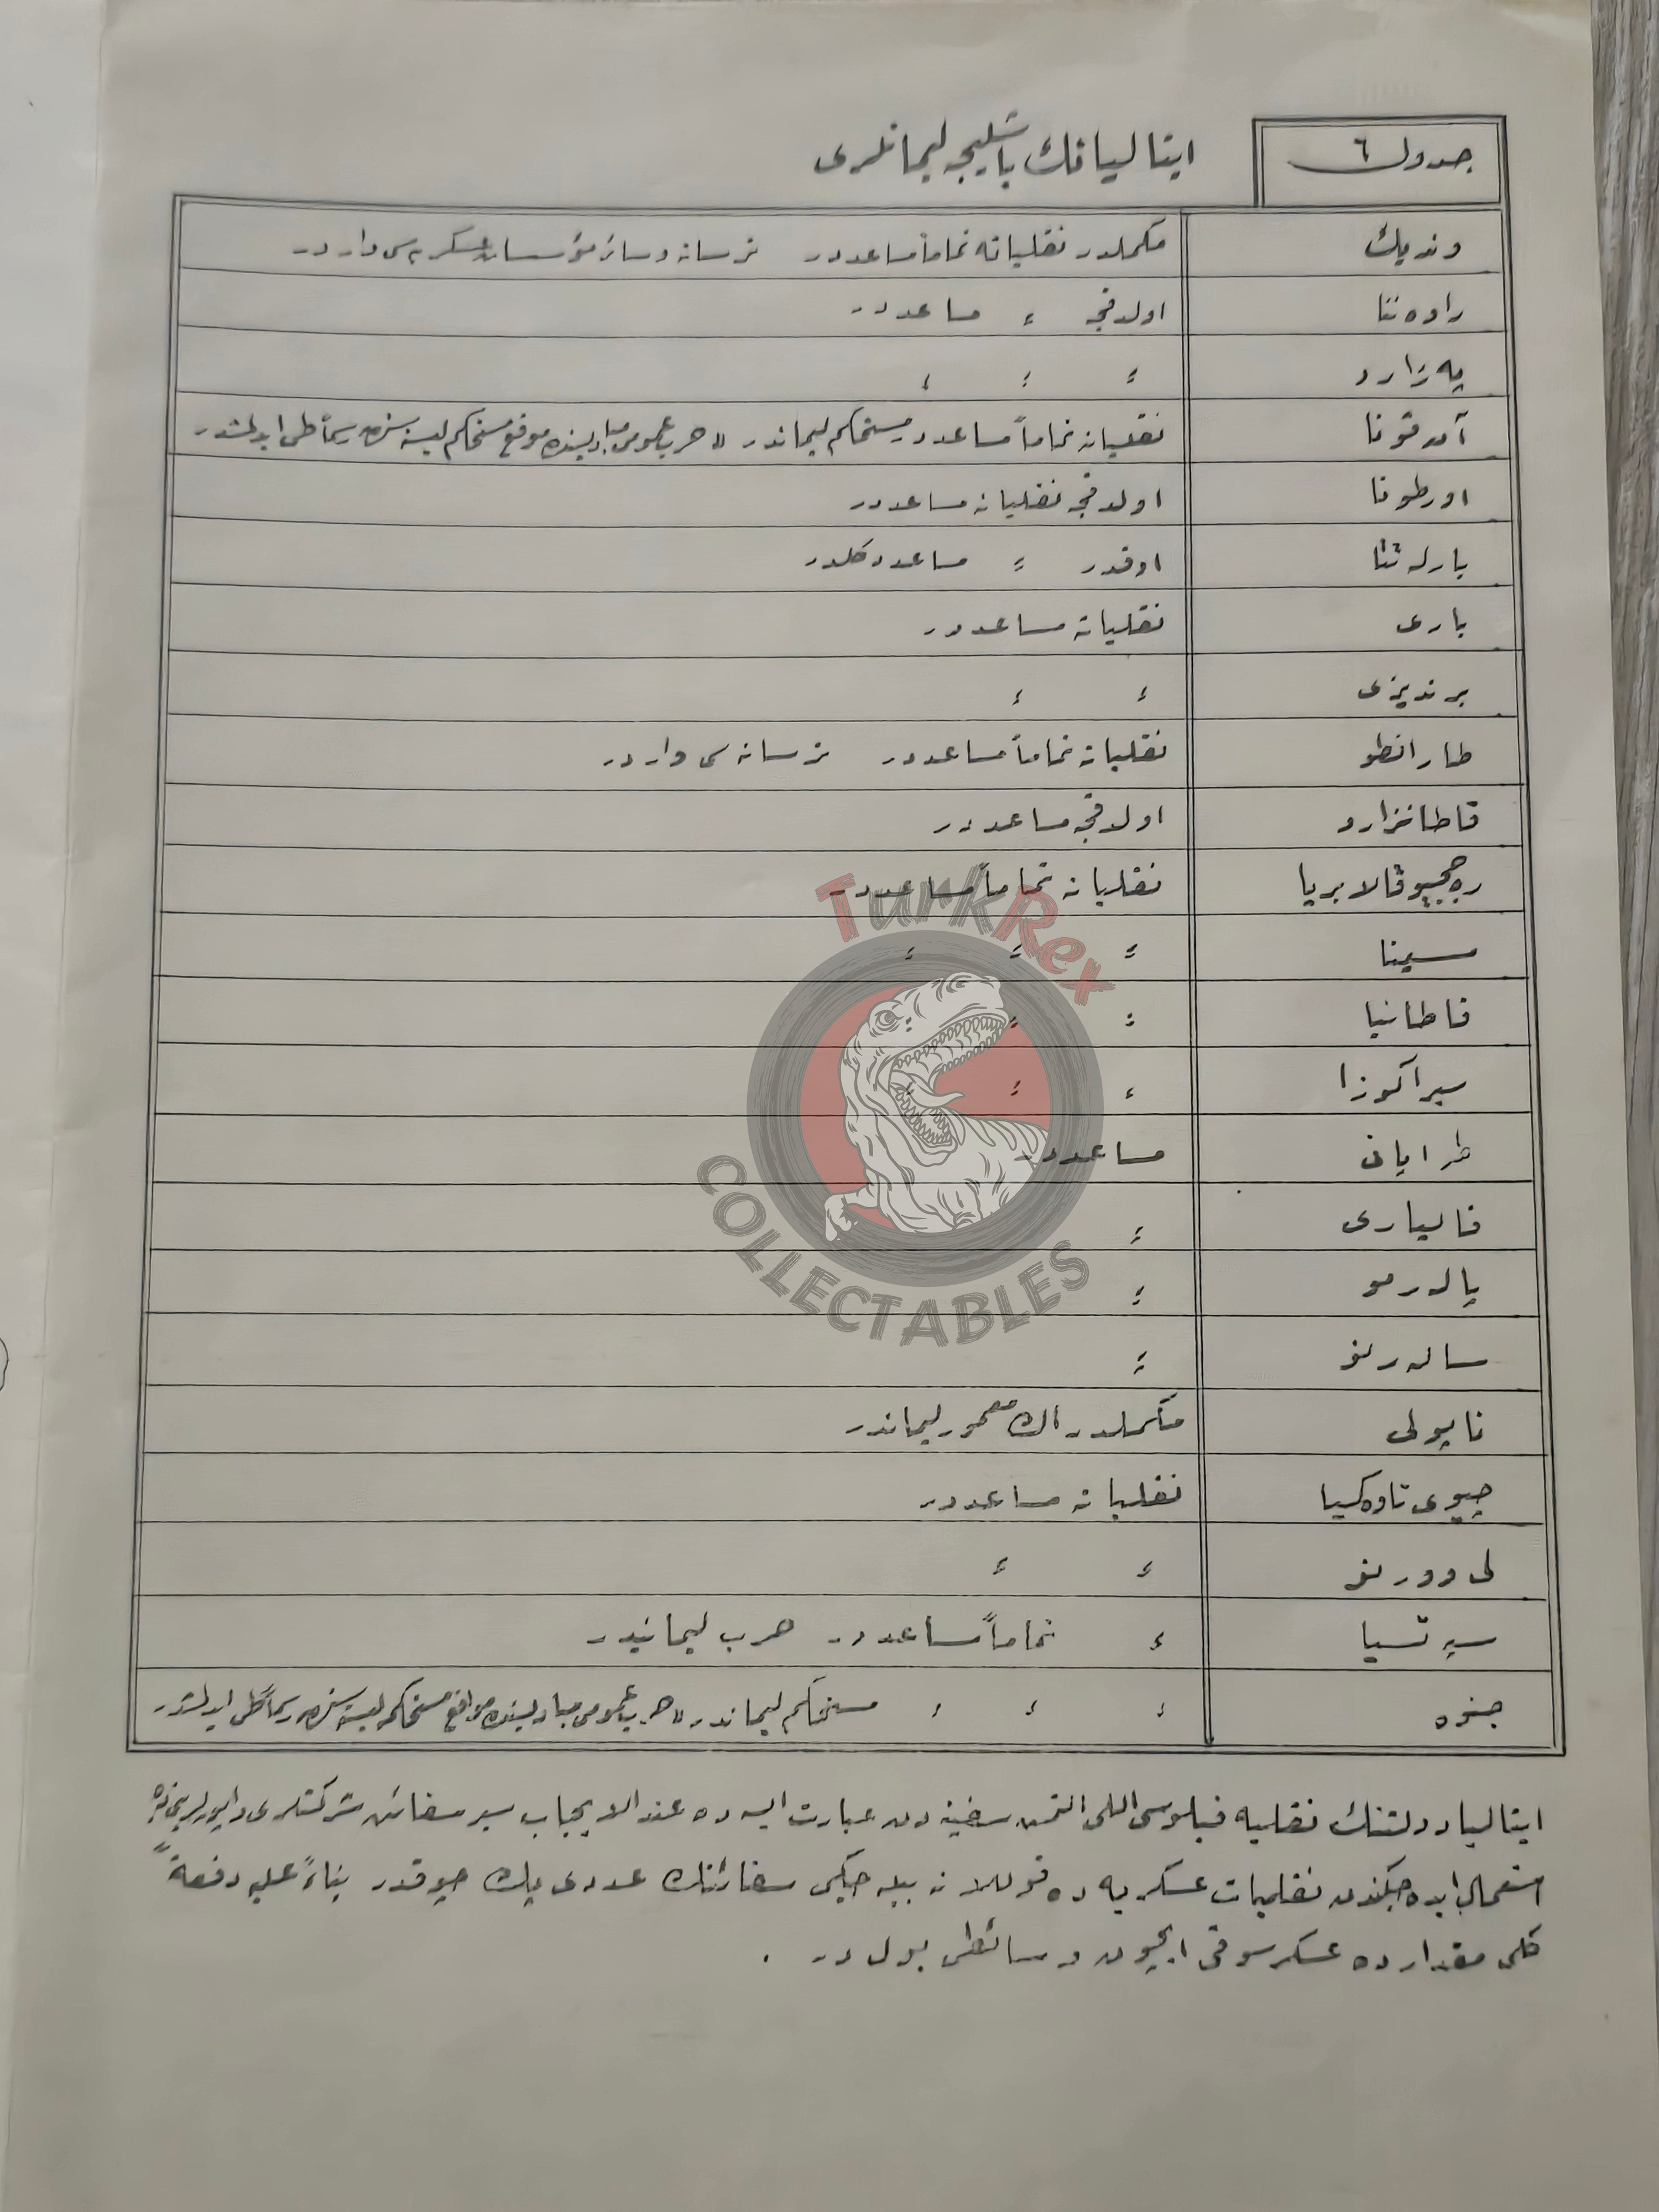 جدول ٦
ایتالیانك باشلیجه لیمانلری
وندیك
مكملدر نقلیاته تماماً مساعددر ترسانه و سائر مؤسسات عسكریه سی واردر
راوه ننا
اولدقجه ⸗ مساعددر
په زارو
⸗ ⸗ ⸗
آنقونا
نقلیاته تماماً مساعددر مستحكم لیماندر حرب عمومی مبادیسنده موقع مستحكم لیسته سندن رسماً طی ایدلمشدر
اورطونا
اولدقجه نقلیاته مساعددر
بارله تتا
اوقدر ⸗ مساعد دكلدر
باری
نقلیاته مساعددر
برندیزی
⸗ ⸗
طارانطو
نقلیاته تماماً مساعددر ترسانه سی واردر
قاطانزارو
اولدقجه مساعددر
ره جیو قالابریا
نقلیاته تماماً مساعددر
مسینا
⸗ ⸗ ⸗
قاطانیا
⸗ ⸗ ⸗
سیراكوزا
⸗ ⸗ ⸗
طراپانی
مساعددر
قالیاری
⸗
پالرمو
⸗
سالرنو
⸗
ناپولی
مكملدر اك معمور لیماندر
چیوی تاوه كیا
نقلیاته مساعددر
لی وورنو
⸗ ⸗
سپتسیا
⸗ تماماً مساعددر حرب لیمانیدر
جنوه
⸗ ⸗ ⸗ مستحكم لیماندر حرب عمومی مبادیسنده مواقع مستحكمه لیسته سندن رسماً طی ایدلمشدر
ایتالیا دولتنك نقلیه فیلوسی اللی التمش سفینه دن عبارت ایسه ده عندالایجاب سیر سفائن شركتلری واپورلرینی ده
استعمال ایده جكندن نقلیات عسكریه ده قوللانه بیله جكی سفائنك عددی پك چوقدر بناءً علیه دفعةً
كلی مقدارده عسكر سوقی ایچون وسائطی بولدر .
TurkRex
COLLECTABLES